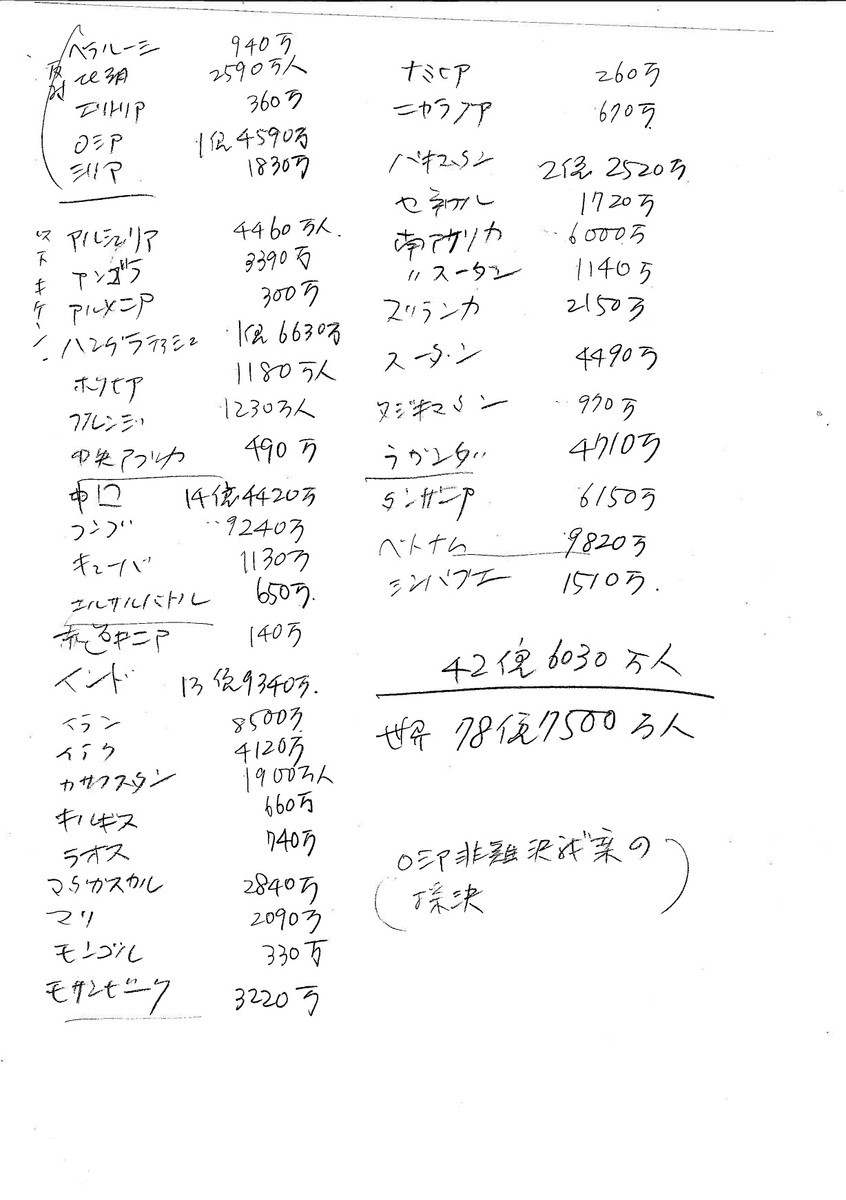 反対
ベラルーシ 940万
北朝 2590万人
エリトリア 360万
ロシア 1億4590万
シリア 1830万
以下キケン.
アルジェリア 4460万人.
アンゴラ 3390万
アルメニア 300万
バングラディシュ 1億6630万
ボリビア 1180万人
ブルンジ 1230万人
中央アフリカ 490万
中囗 14億4420万
コンゴ 9240万
キューバ 1130万
エルサルバトル 650万.
赤道ギニア 140万
インド 13億9340万.
イラン 8500万
イラク 4120万
カザフスタン 1900万人
キルギス 660万
ラオス 740万
マダガスカル 2840万
マリ 2090万
モンゴル 330万
モザンビーク 3220万
ナミビア 260万
ニカラグア 670万.
パキスタン 2億2520万
セネガル 1720万
南アフリカ 6000万
〃スーダン 1140万
スリランカ 2150万
スーダン 4490万
タジキスタン 970万
うガンダ 4710万
タンザニア 6150万
ベトナム 9820万
ジンバブエ 1510万.
42億6030万人
世界 78億7500万人
(ロシア非難決議案の
採決)